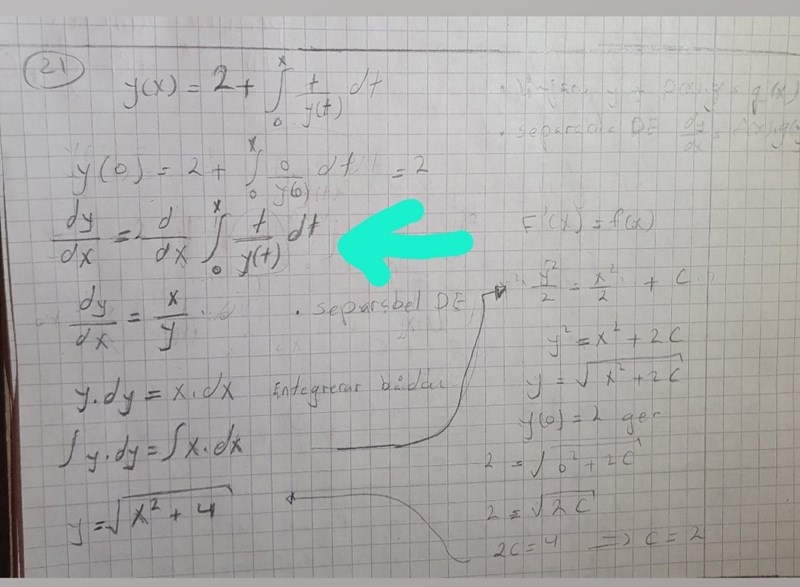 21
y(x) = 2 + ∫₀ˣ t/y(t) dt
y(0) = 2 + ∫₀ˣ 0/y(0) dt = 2
dy/dx = d/dx ∫₀ˣ t/y(t) dt
dy/dx = x/y
• separabel DE
y·dy = x·dx Integrerar bådar
∫y·dy = ∫x·dx
y = √(x² + 4)
• separabel DE dy/dx =
F'(x) = f(x)
y²/2 = x²/2 + C
y² = x² + 2C
y = √(x² + 2C)
y(0) = 2 ger
2 = √(0² + 2C)
2 = √(2C)
2C = 4 ⇒ C = 2